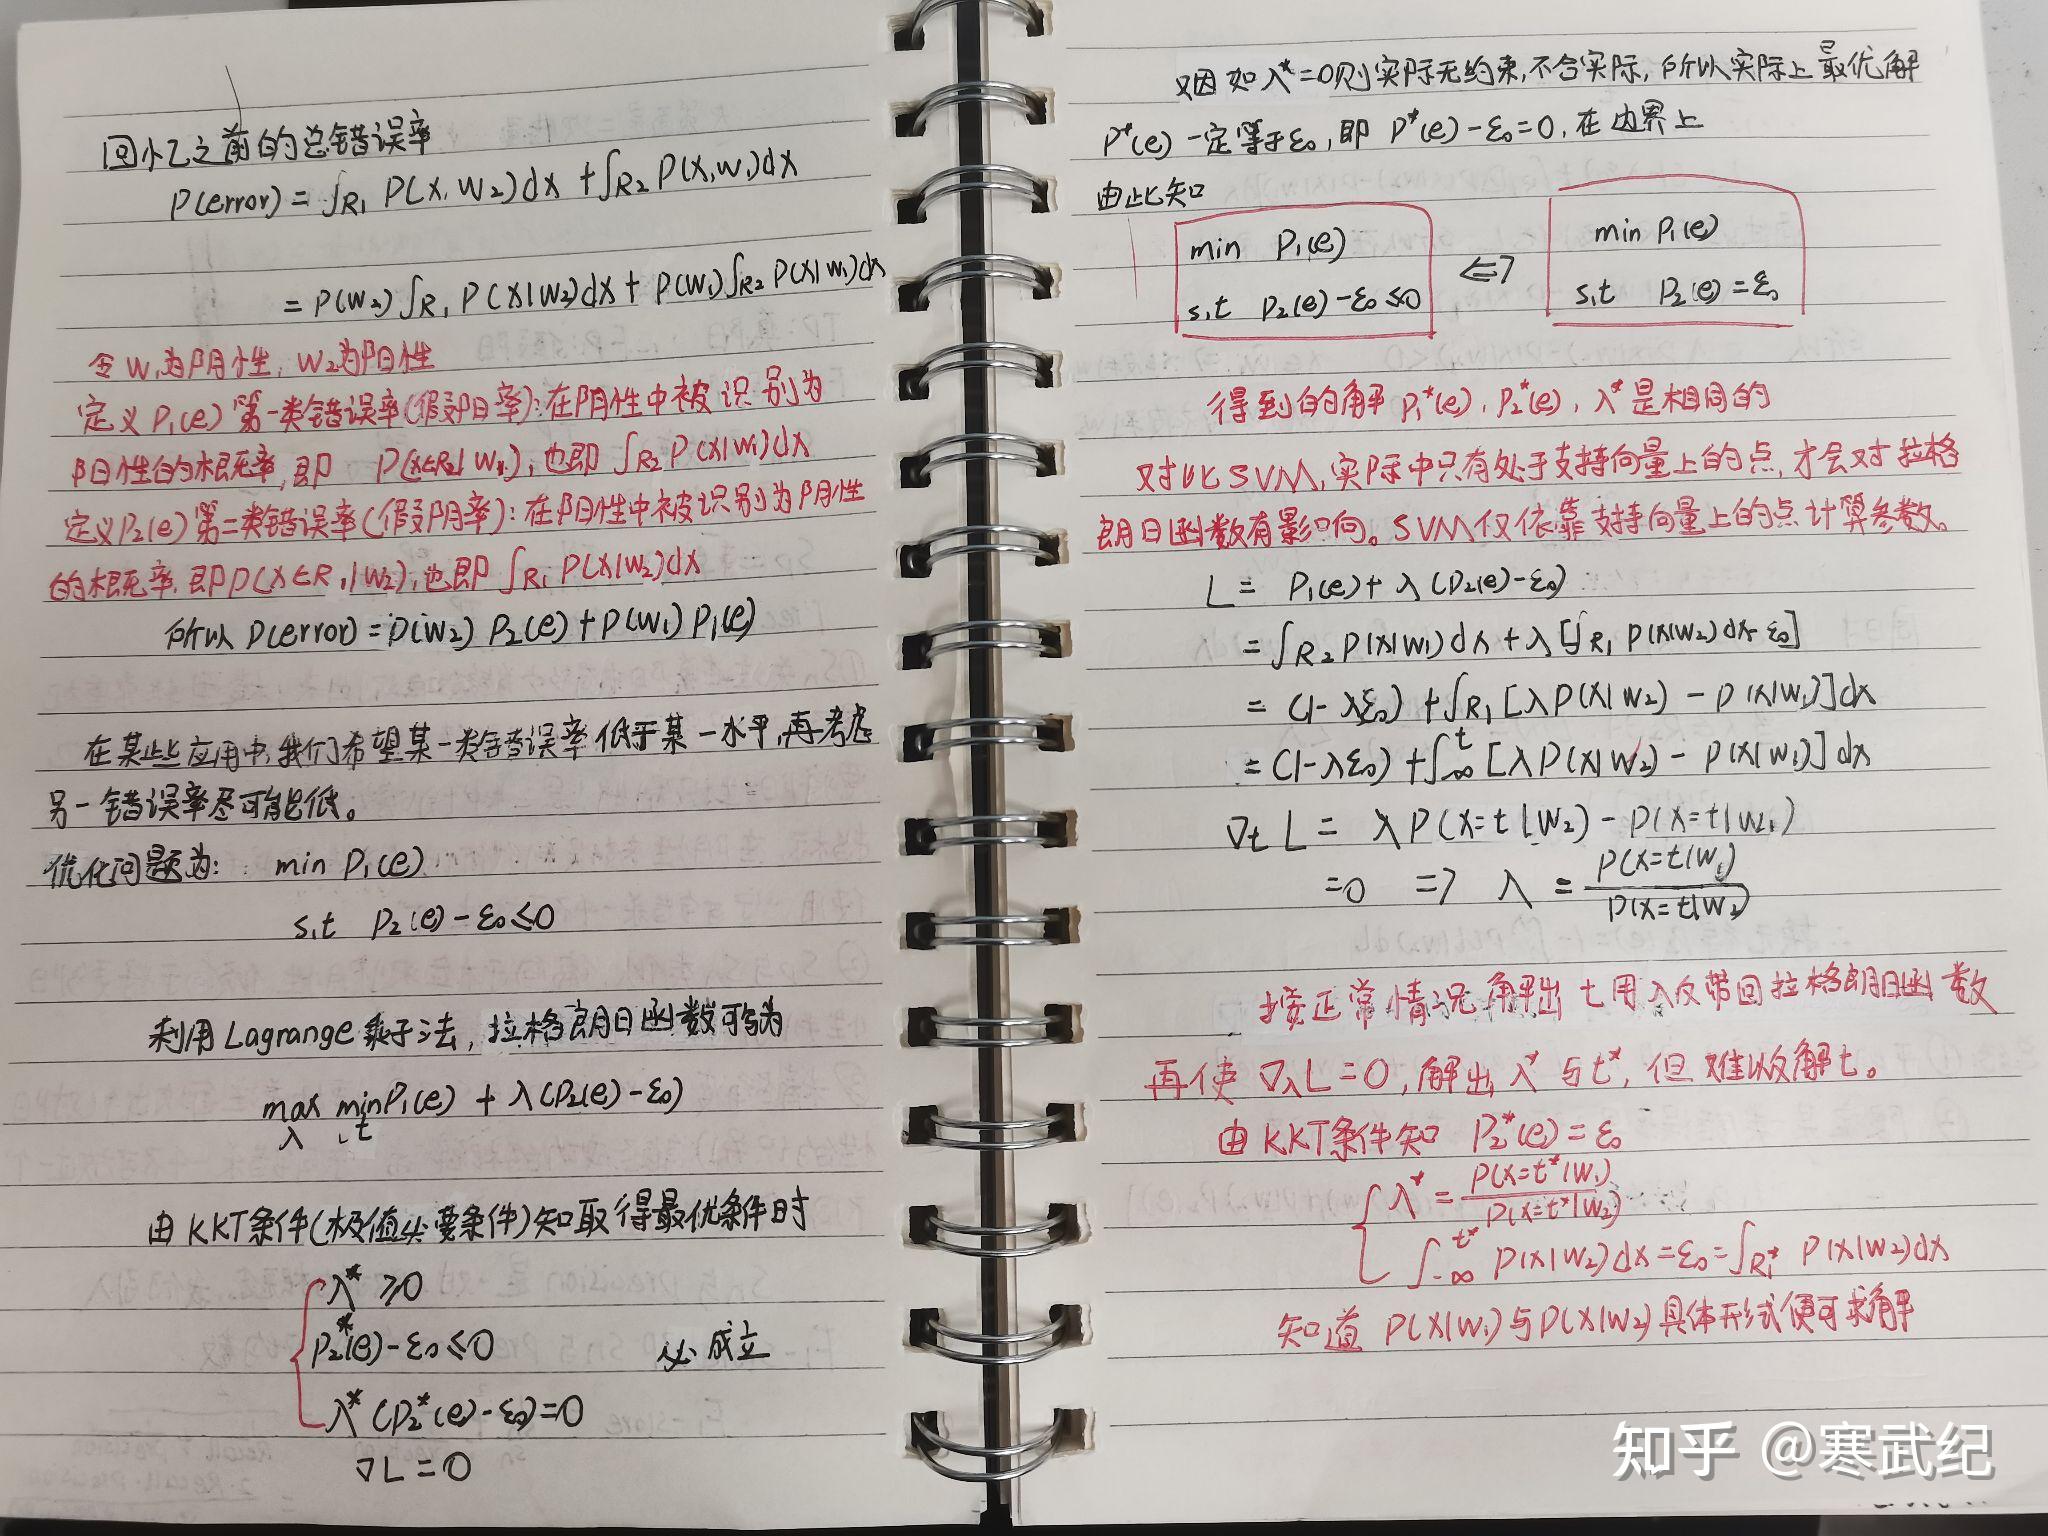 回忆之前的总错误率
P(error) = ∫R₁ P(X, W₂)dX + ∫R₂ P(X, W₁)dX
= P(W₂)∫R₁ P(X|W₂)dX + P(W₁)∫R₂ P(X|W₁)dX
令W₁为阴性, W₂为阳性
定义P₁(e)第一类错误率(假阳率):在阴性中被识别为
阳性的概率,即 P(X∈R₂|W₁), 也即 ∫R₂ P(X|W₁)dX
定义P₂(e)第二类错误率(假阴率):在阳性中被识别为阴性
的概率,即P(X∈R₁|W₂),也即 ∫R₁ P(X|W₂)dX
所以 P(error) = P(W₂) P₂(e) + P(W₁) P₁(e)
在某些应用中,我们希望某一类错误率低于某一水平,再考虑
另一错误率尽可能低。
优化问题为: min P₁(e)
s,t P₂(e)-ε₀≤0
利用Lagrange乘子法, 拉格朗日函数可写为
max min P₁(e) + λ(P₂(e)-ε₀)
λ t
由KKT条件(极值必要条件)知取得最优条件时
λ* ≥0
P₂*(e)-ε₀≤0 必成立
λ*(P₂*(e)-ε₀)=0
∇L=0
又因如λ*=0则实际无约束,不合实际,所以实际上最优解
P*(e)一定等于ε₀,即 P*(e)-ε₀=0,在边界上
由此知
min P₁(e) ⟺ min P₁(e)
s,t P₂(e)-ε₀≤0 s,t P₂(e)=ε₀
得到的解P₁*(e), P₂*(e), λ*是相同的
对比SVM,实际中只有处于支持向量上的点,才会对拉格
朗日函数有影响。SVM仅依靠支持向量上的点计算参数。
L = P₁(e)+ λ(P₂(e)-ε₀)
= ∫R₂ P(X|W₁)dX + λ[∫R₁ P(X|W₂)dX-ε₀]
= (1-λε₀) + ∫R₁[λP(X|W₂) - P(X|W₁)]dX
= (1-λε₀) + ∫₋∞ᵗ [λP(X|W₂) - P(X|W₁)]dX
∇t L = λP(X=t|W₂) - P(X=t|W₁)
=0 => λ = P(X=t|W₁)/P(X=t|W₂)
按正常情况解出t用λ反带回拉格朗日函数
再使∇λL=0,解出λ*与t*,但难以反解t。
由KKT条件知 P₂*(e)=ε₀
λ* = P(X=t*|W₁)/P(X=t*|W₂)
∫₋∞ᵗ* P(X|W₂)dX=ε₀=∫R₁* P(X|W₂)dX
知道 P(X|W₁)与P(X|W₂)具体形式便可求解
知乎 @寒武纪